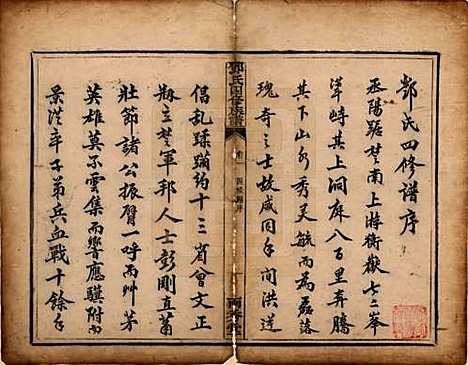 鄧氏四修譜序
烝陽踞楚南上游衡嶽七二峯
峙其上洞庭八百里奔騰
其下山水秀美毓而為磊落
瑰奇之士故咸同年間洪逆
鄧氏四修族譜
卷一
四修譜序
倡亂蹂躪約十三省曾文正
剏立楚軍邦人士彭剛直蕭
壯節諸公振臂一呼而艸茅
英雄莫不雲集而響應驥附而
景從率子弟兵血戰十餘年